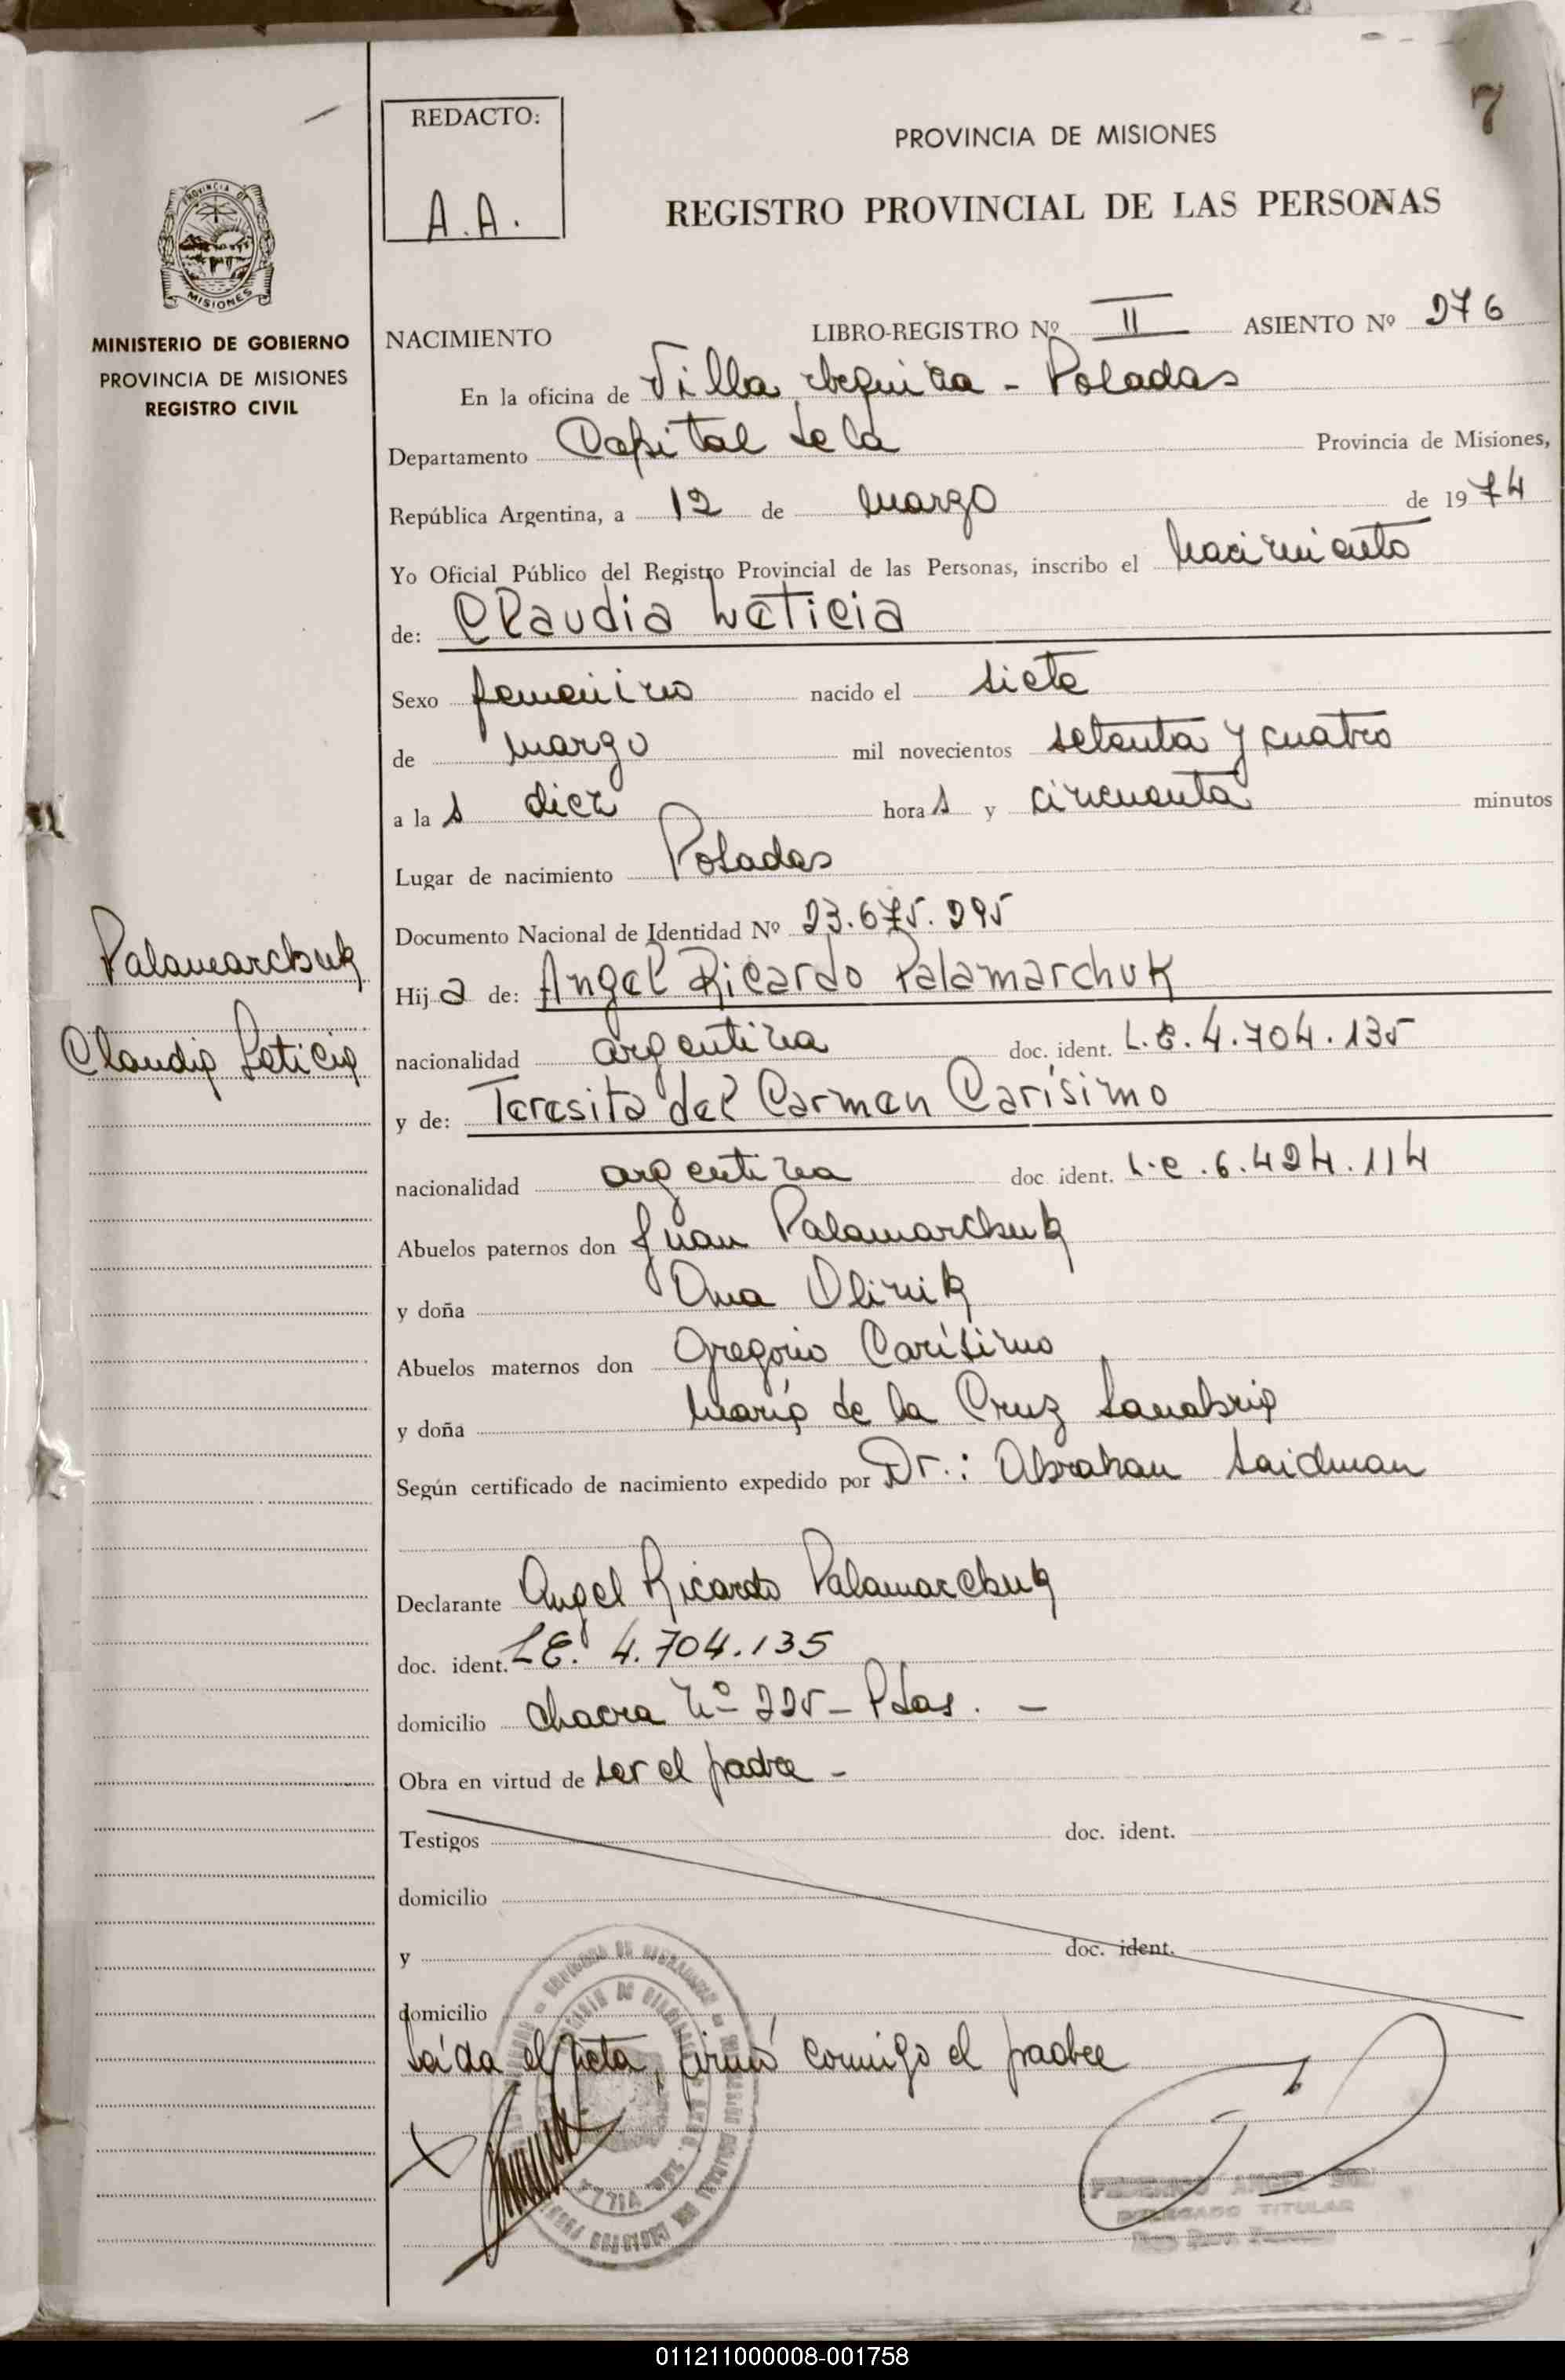 7
REDACTO:
A.A.
PROVINCIA DE MISIONES
REGISTRO PROVINCIAL DE LAS PERSONAS
PROVINCIA DE
MISIONES
MINISTERIO DE GOBIERNO
PROVINCIA DE MISIONES
REGISTRO CIVIL
NACIMIENTO LIBRO-REGISTRO Nº II ASIENTO Nº 276
En la oficina de Villa Urquiza - Posadas
Departamento Capital de la Provincia de Misiones,
República Argentina, a 12 de marzo de 1974
Yo Oficial Público del Registro Provincial de las Personas, inscribo el nacimiento
de: Claudia Leticia
Sexo femenino nacido el siete
de marzo mil novecientos setenta y cuatro
a las diez horas y cincuenta minutos
Lugar de nacimiento Posadas
Documento Nacional de Identidad Nº 23.675.295
Palamarchuk
Claudia Leticia
Hija de: Angel Ricardo Palamarchuk
nacionalidad argentina doc. ident. L.E. 4.704.135
y de: Teresita del Carmen Carísimo
nacionalidad argentina doc. ident. L.C. 6.424.114
Abuelos paternos don Juan Palamarchuk
y doña Ana Olinik
Abuelos maternos don Gregorio Carísimo
y doña María de la Cruz Sanabria
Según certificado de nacimiento expedido por Dr.: Abrahan Saidman
Declarante Angel Ricardo Palamarchuk
doc. ident. LE. 4.704.135
domicilio chacra Nº 225 - Pdas. -
Obra en virtud de ser el padre -
Testigos doc. ident.
domicilio
y doc. ident.
domicilio
Leída el acta, firmó conmigo el padre
DELEGADO TITULAR
011211000008-001758